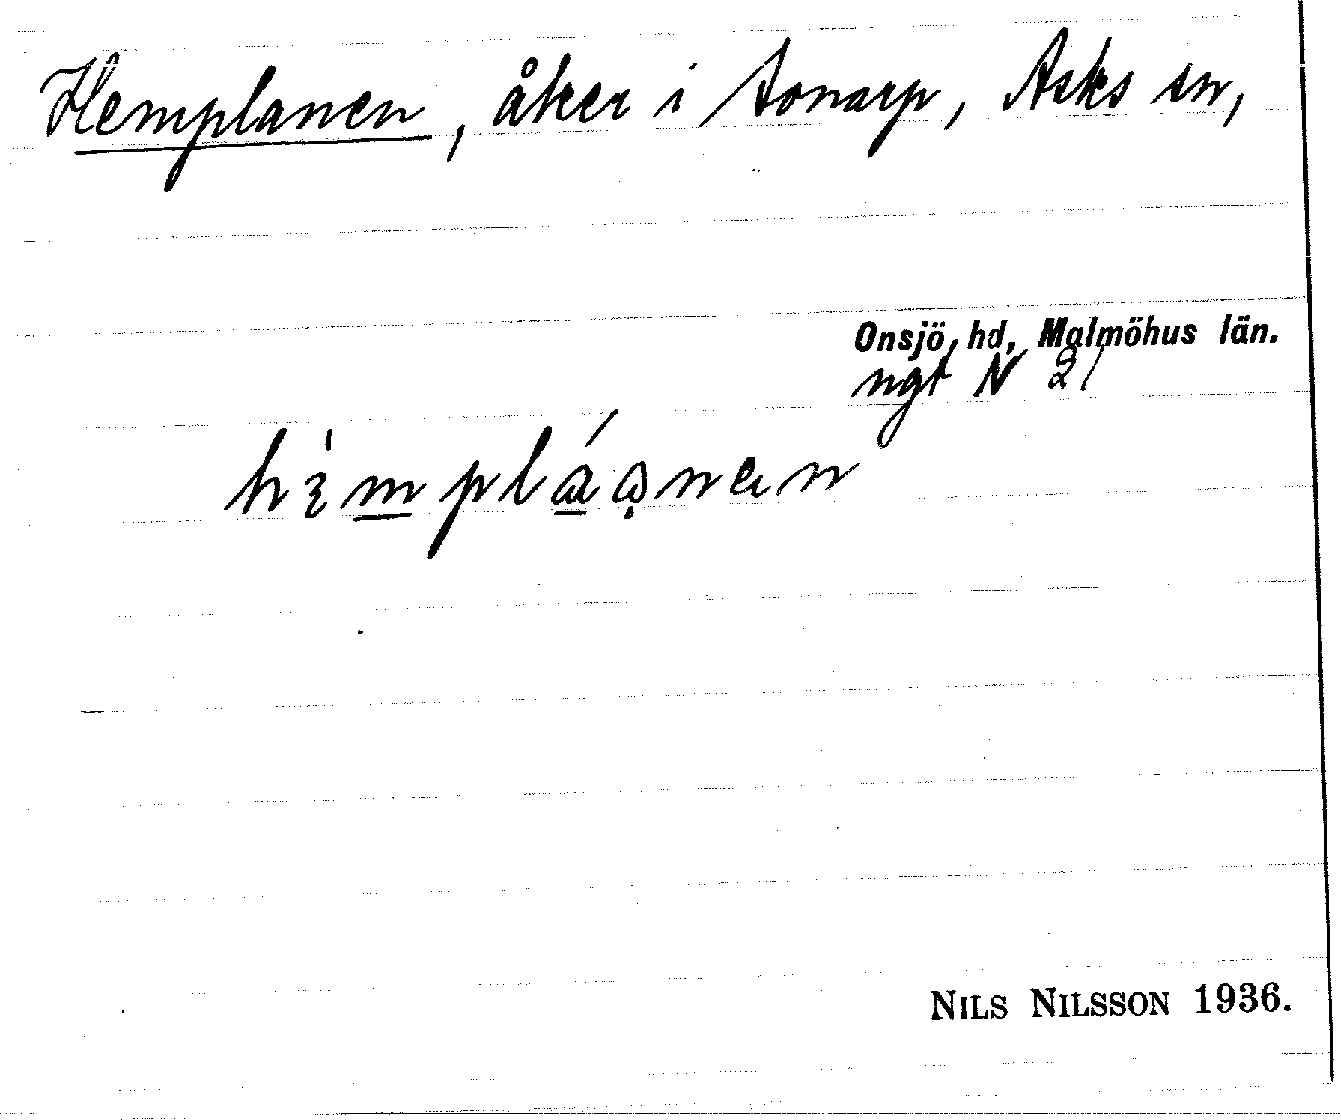 Hemplanen, åker i Tonarp, Asks sn,
Onsjö hd, Malmöhus län.
ngt N 21
NILS NILSSON 1936.